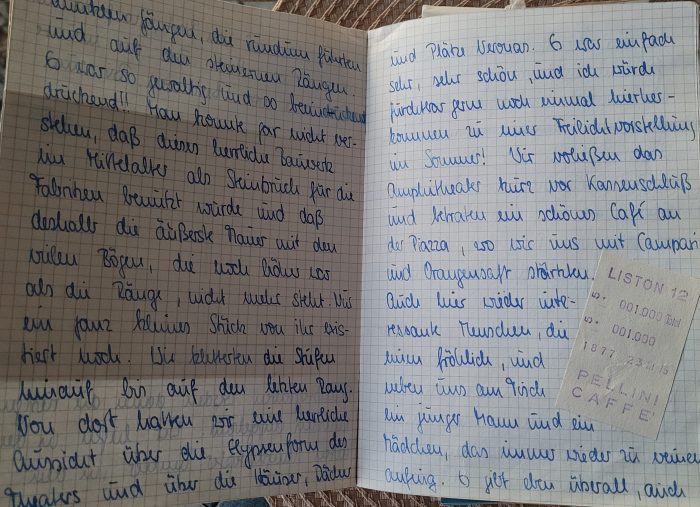 dunklen Gängen, die rundum führten
und auf den steinernen Rängen.
Es war so gewaltig und so beeindruckend
drückend!! Man konnte gar nicht ver-
stehen, daß dieses herrliche Bauwerk
im Mittelalter als Steinbruch für die
Fabriken benutzt wurde und daß
deshalb die äußerste Mauer mit den
vielen Bögen, die noch höher war
als die Ränge, nicht mehr steht. Nur
ein ganz kleines Stück von ihr exis-
tiert noch. Wir kletterten die Stufen
hinauf bis auf den letzten Rang.
Von dort hatten wir eine herrliche
Aussicht über die Elypsenform des
Theaters und über die Häuser, Dächer
und Plätze Veronas. Es war einfach
sehr, sehr schön, und ich würde
furchtbar gerne noch einmal hierher-
kommen zu einer Freilichtvorstellung
im Sommer! Wir verließen das
Amphitheater kurz vor Kassenschluß
und betraten ein schönes Café an
der Piazza, wo wir uns mit Campari
und Orangensaft stärkten.
Auch hier wieder inte-
ressante Menschen, die
einen fröhlich, und
neben uns am Tisch
ein junger Mann und ein
Mädchen, das immer wieder zu weinen
anfing. Es gibt eben überall, auch
LISTON 12
001.000 Total
001.000
1877
PELLINI
CAFFE'